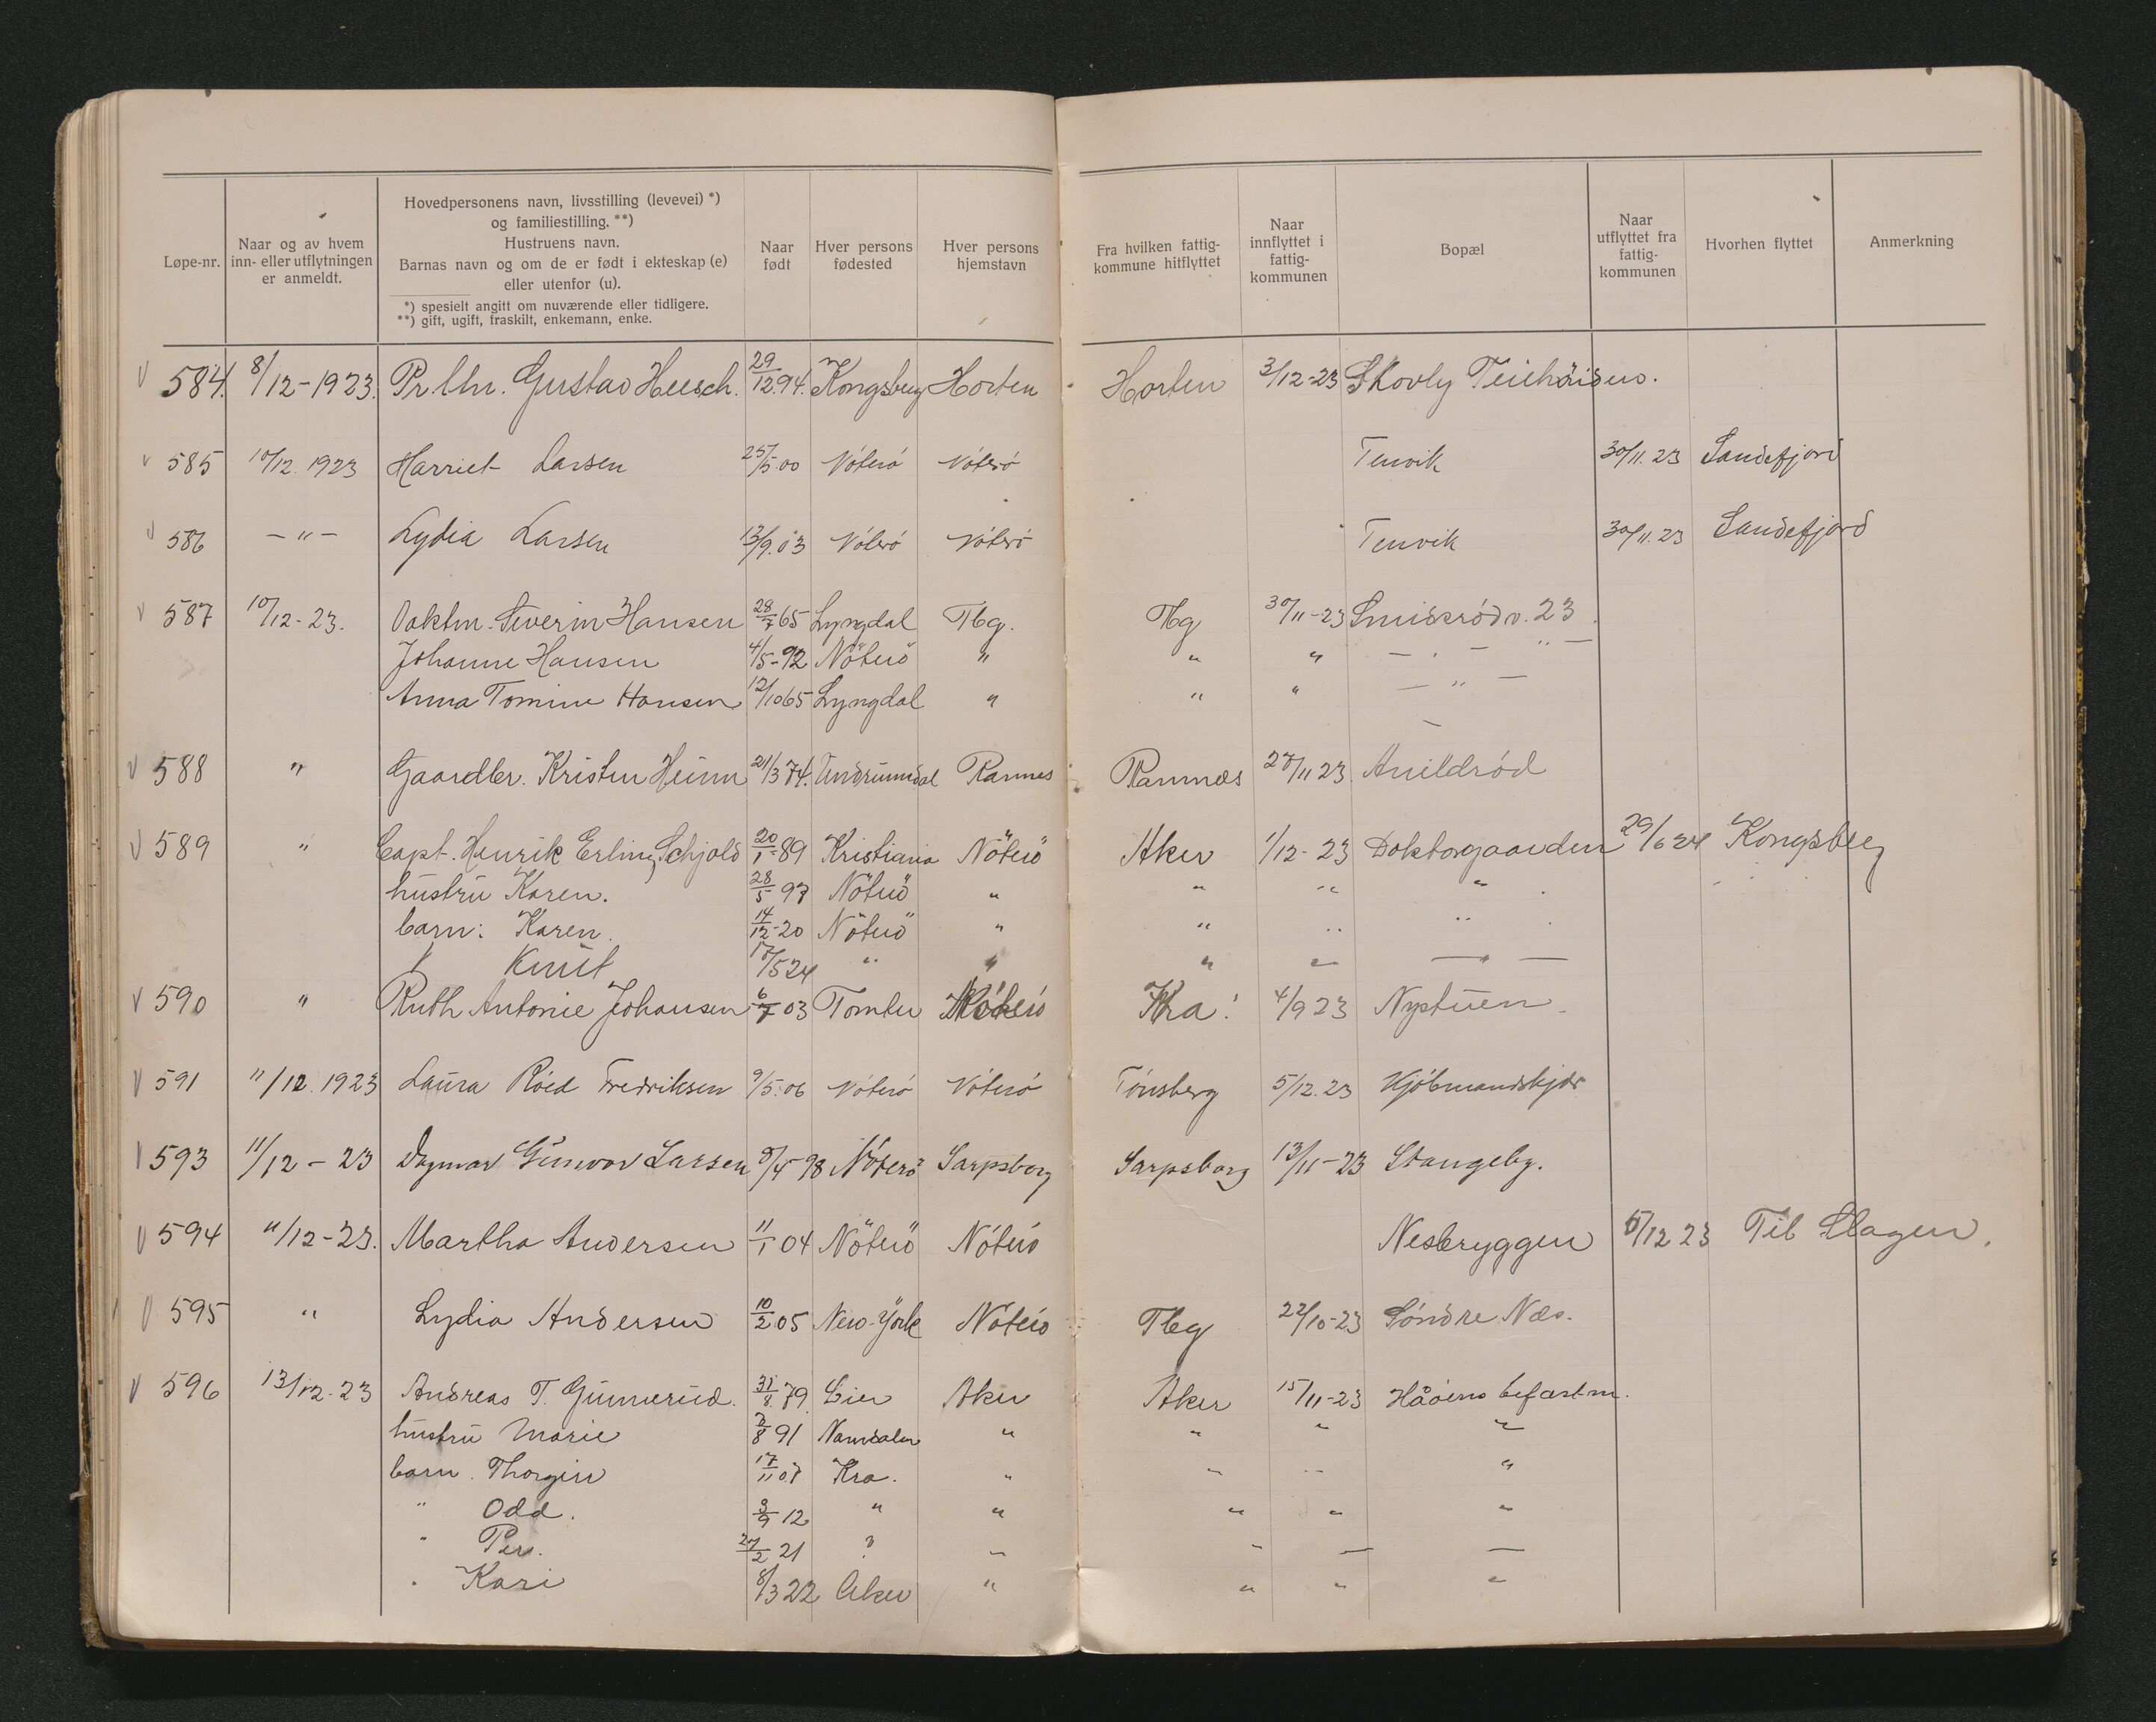 Løpe-nr.
Naar og av hvem inn- eller utflytningen er anmeldt.
Hovedpersonens navn, livsstilling (levevei) *) og familiestilling. **)
Hustruens navn.
Barnas navn og om de er født i ekteskap (e) eller utenfor (u).
*) spesielt angitt om nuværende eller tidligere.
**) gift, ugift, fraskilt, enkemann, enke.
Naar født
Hver persons fødested
Hver persons hjemstavn
Fra hvilken fattigkommune hitflyttet
Naar innflyttet i fattigkommunen
Bopæl
Naar utflyttet fra fattigkommunen
Hvorhen flyttet
Anmerkning
584. 8/12-1923. Pr.ltn. Gustav Heesch. 29/12.94. Kongsberg Horten Horten 3/12-23 Skovly
585 10/12. 1923 Harriet Larsen 25/5.00 Nóteró Nóteró Tenvik 30/11.23 Sandefjord
586 -"- Lydia Larsen 13/9.03 Nóteró Nóteró Tenvik 30/11.23 Sandefjord
587 10/12-23. Vaktm. Severin Hansen 28/7 65 Lyngdal Tbg. Tbg 30/11-23 Smidsródv. 23
Johanne Hansen 4/5-92 Nöteö " " " - " -
Anna Tomine Hansen 12/10 65 Lyngdal " " " - " -
588 " Gaardbr. Kristen Heimn 21/3 74. Undrumsdal Ramnes Ramnæs 27/11 23 Amildród
589 " Capt. Henrik Erling Schjold 20/1-89 Kristiania Nöterö Aker 1/12-23 Doktorgaarden 29/6 24 Kongsberg
hustru Karen. 28/5 97 Nöterö " " " "
barn: Karen. 14/12-20 Nöterö " " " "
Knut 17/5 24 " " " " - " -
590 " Ruth Antonie Johansen 6/7 03 Tomter Nóteró Kra. 4/9 23 Nystuen
591 11/12. 1923 Laura Róed Fredriksen 9/5.06 Nóteró Nóteró Tónsberg 5/12.23 Kjóbmandskjær
593 11/12-23 Dagmar Gunvor Larsen 9/4-98 Nóteró Sarpsborg Sarpsborg 13/11-23 Stangeby.
594 11/12-23. Martha Andersen 11/1 04 Nöterö Nóteró Nesbryggen 5/12 23 Til Slagen.
595 " Lydia Andersen 10/2 05 New-York Nóteró Tbg 22/10-23 Söndre Næs.
596 13/12-23 Andreas T. Gunnerud. 31/8.79. Lier Aker Aker 15/11-23 Håöens befæstn.
hustru Marie 2/8 91 Namdalen " " " "
barn. Thorgin 17/11 07 Kra. " " " "
" Odd. 3/9 12 " " " " "
" Per. 27/2 21 " " " - -
" Kari 8/3 22 Aker " " " "